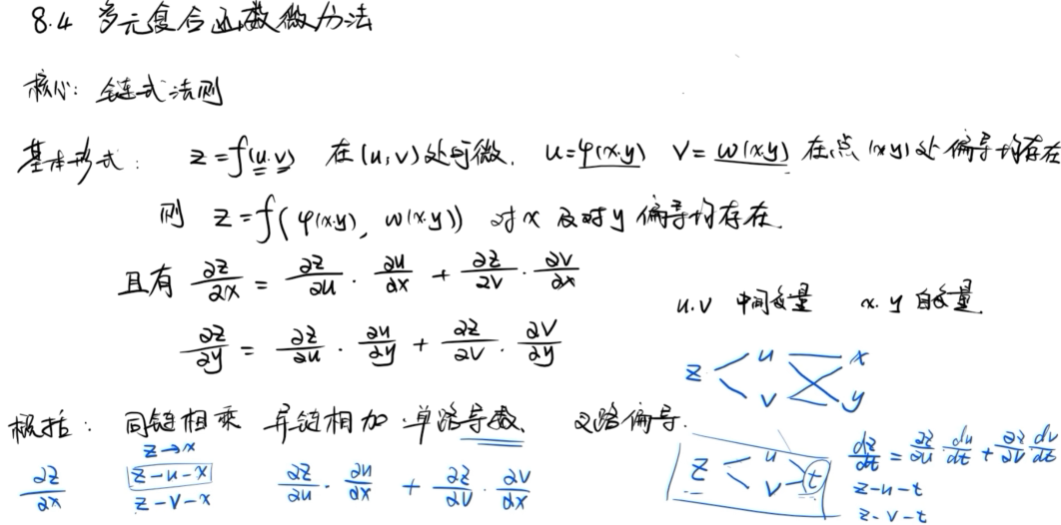 8.4 多元复合函数微分法
核心: 链式法则
基本形式: z=f(u.v) 在(u,v)处可微. u=φ(x.y) v=ω(x.y) 在点(x.y)处偏导均存在
则 z=f(φ(x.y), ω(x.y)) 对x及对y偏导均存在.
且有 ∂z/∂x = ∂z/∂u · ∂u/∂x + ∂z/∂v · ∂v/∂x
u.v 中间变量 x.y 自变量
∂z/∂y = ∂z/∂u · ∂u/∂y + ∂z/∂v · ∂v/∂y
z u x
v y
概括: 同链相乘 异链相加 单路导数. 叉路偏导.
z→x
∂z/∂x z-u-x ∂z/∂u · ∂u/∂x + ∂z/∂v · ∂v/∂x
z-v-x
z u v t dz/dt = ∂z/∂u du/dt + ∂z/∂v dv/dt
z-u-t
z-v-t